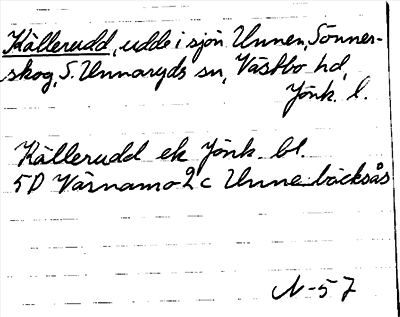 Källerudd, udde i sjön Unnen, Sönner-
skog, S. Unnaryds sn, Västbo hd,
Jönk. l.
Källerudd ek Jönk. bl.
5D Värnamo 2c Unnebäcksås
N-57